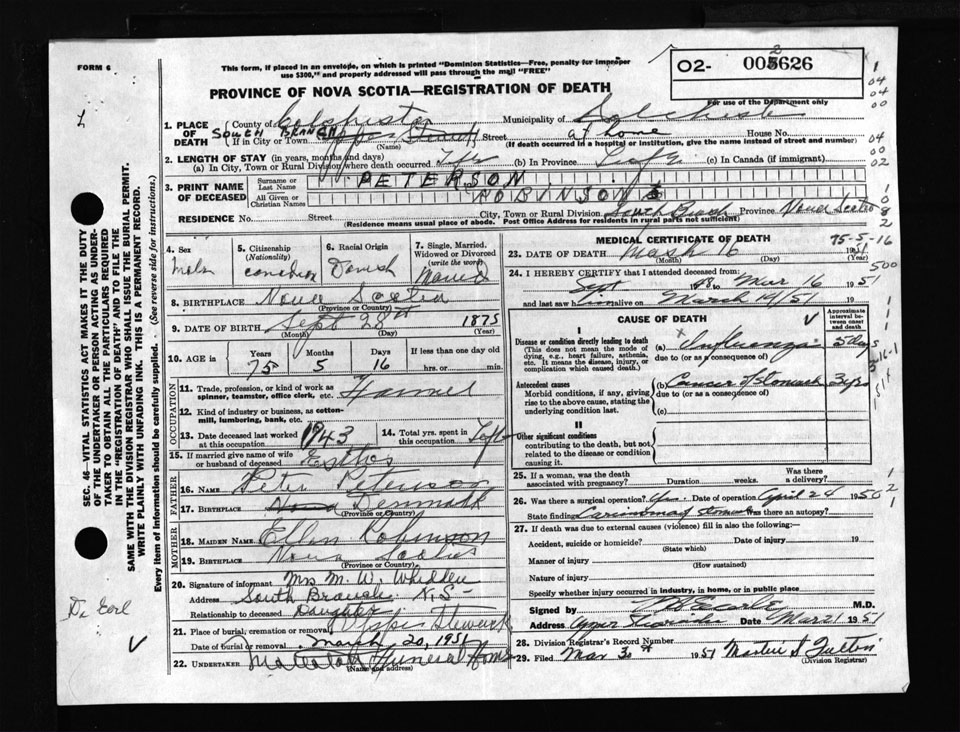 FORM 6
This form, if placed in an envelope, on which is printed "Dominion Statistics—Free, penalty for improper
use $300," and properly addressed will pass through the mail "FREE"
PROVINCE OF NOVA SCOTIA—REGISTRATION OF DEATH
02- 005626
2
For use of the Department only
1. PLACE OF DEATH
County of Colchester Municipality of Colchester
SOUTH BRANCH
If in City or Town Upper Street at home House No.
(Name) (If death occurred in a hospital or institution, give the name instead of street and number)
2. LENGTH OF STAY (in years, months and days)
(a) In City, Town or Rural Division where death occurred Life (b) In Province Life (c) In Canada (if immigrant)
3. PRINT NAME OF DECEASED
Surname or Last Name PETERSON
All Given or Christian Names ROBINSON
RESIDENCE No. Street City, Town or Rural Division South Branch Province Nova Scotia
(Residence means usual place of abode. Post Office Address for residents in rural parts not sufficient)
4. Sex Male
5. Citizenship (Nationality) Canadian
6. Racial Origin Danish
7. Single, Married, Widowed or Divorced (write the word) Married
8. BIRTHPLACE Nova Scotia
(Province or Country)
9. DATE OF BIRTH Sept 28th 1875
(Month) (Day) (Year)
10. AGE in Years Months Days If less than one day old
75 5 16 hrs. or min.
OCCUPATION
11. Trade, profession, or kind of work as spinner, teamster, office clerk, etc. Farmer
12. Kind of industry or business, as cotton-mill, lumbering, bank, etc.
13. Date deceased last worked at this occupation 1943
14. Total yrs. spent in this occupation Life
15. If married give name of wife or husband of deceased Esther
FATHER
16. NAME Peter Peterson
17. BIRTHPLACE Denmark
(Province or Country)
MOTHER
18. MAIDEN NAME Ellen Robinson
19. BIRTHPLACE Nova Scotia
(Province or Country)
20. Signature of informant Mrs M. W. Whidden
Address South Branch N.S-
Relationship to deceased Daughter
21. Place of burial, cremation or removal Upper Stewiacke
Date of burial or removal March 20, 1951
22. UNDERTAKER Funeral Home
(Name and address)
MEDICAL CERTIFICATE OF DEATH 75-5-16
23. DATE OF DEATH March 16 1951
(Month) (Day) (Year)
24. I HEREBY CERTIFY that I attended deceased from:
Sept 1948 to Mar 16 1951
and last saw him alive on March 14/51 19
CAUSE OF DEATH
Approximate interval between onset and death
I
Disease or condition directly leading to death
(This does not mean the mode of dying, e.g., heart failure, asthenia, etc. It means the disease, injury, or complication which caused death.)
(a) Influenza 5 days
due to (or as a consequence of)
Antecedent causes
Morbid conditions, if any, giving rise to the above cause, stating the underlying condition last.
(b) Cancer of stomach 3 yrs
due to (or as a consequence of)
(c)
II
Other significant conditions
contributing to the death, but not related to the disease or condition causing it.
25. If a woman, was the death associated with pregnancy? Duration weeks. Was there a delivery?
26. Was there a surgical operation? Date of operation April 24 1950
State finding Carcinoma of stomach Was there an autopsy?
27. If death was due to external causes (violence) fill in also the following:—
Accident, suicide or homicide? Date of injury 19
(State which)
Manner of injury
(How sustained)
Nature of injury
Specify whether injury occurred in industry, in home, or in public place
Signed by M.D.
Address Upper Date Mar 21 1951
28. Division Registrar's Record Number
29. Filed Mar 30th 1951 Martin S Fulton
(Division Registrar)
SEC. 46—VITAL STATISTICS ACT MAKES IT THE DUTY
OF THE UNDERTAKER OR PERSON ACTING AS UNDER-
TAKER TO OBTAIN ALL THE PARTICULARS REQUIRED
IN THE "REGISTRATION OF DEATH" AND TO FILE THE
SAME WITH THE DIVISION REGISTRAR WHO SHALL ISSUE THE BURIAL PERMIT.
WRITE PLAINLY WITH UNFADING INK. THIS IS A PERMANENT RECORD.
Every item of information should be carefully supplied. (See reverse side for instructions.)